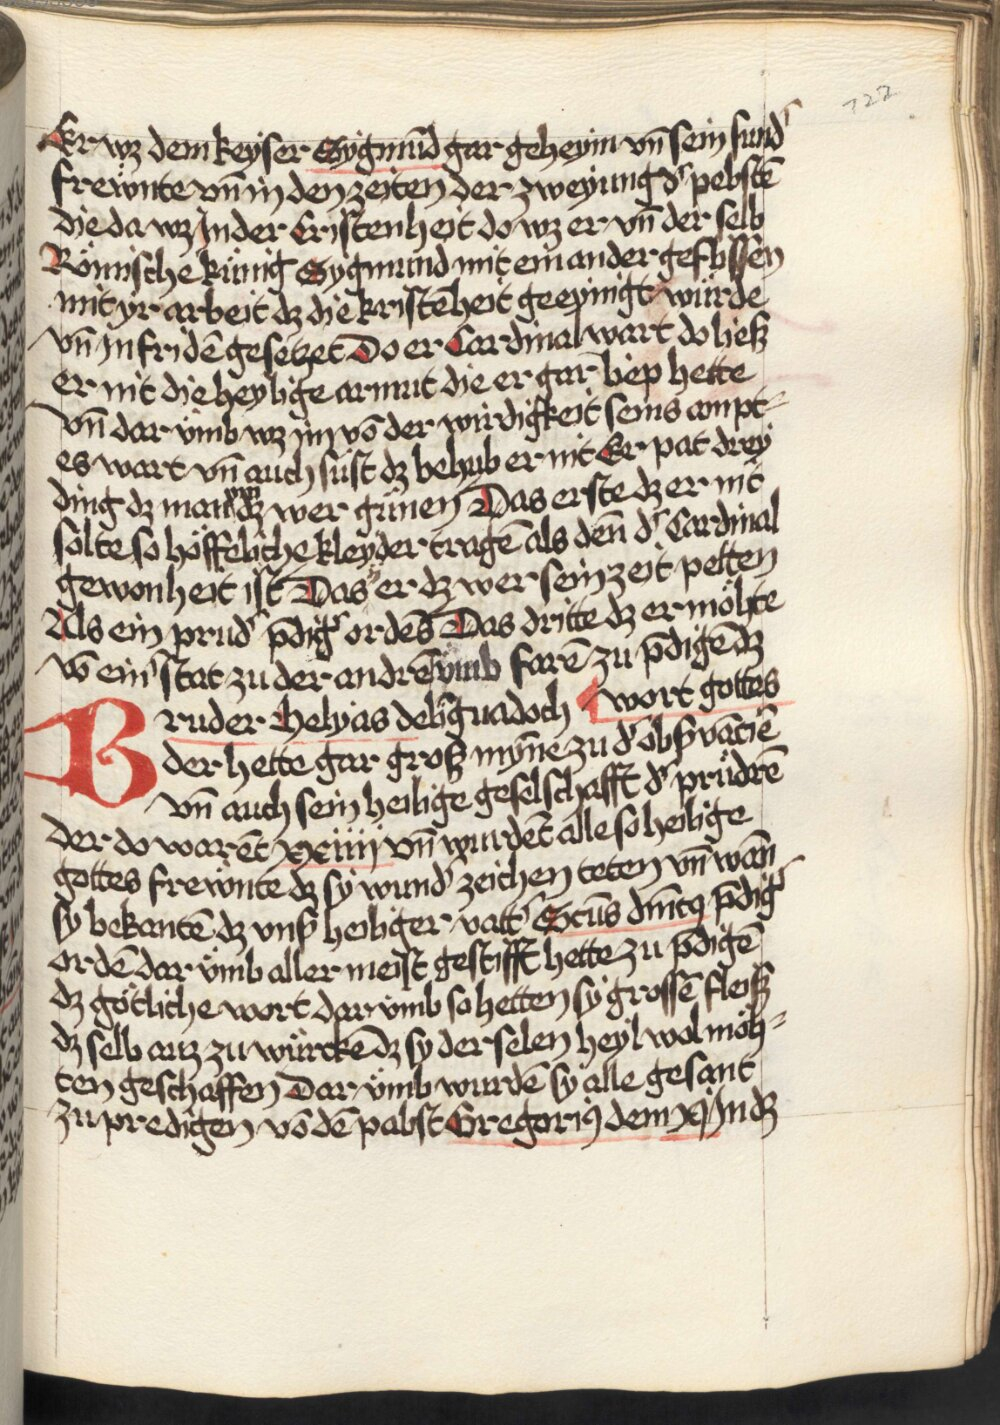 722
Er wz dem keyser Sygmūd gar geheym vn̄ sein sund᷑
frewnte vn̄ in den zeiten der zweyung d᷑ pebstē
die da wz Jn der Cristenheit do wz er vn̄ der selb
Römische künig Sygmund mit ein ander geflissen
mit yr arbeit dz die kristēheit geeynigt würde
vn̄ jn fridē gesetzet Do er Cardinal wart do ließ
er nit die heylige armut die er gar liep hette
vn̄ dar vmb wz im vō der wirdigkeit seins ampt⸗
es wart vn̄ auch sust dz behub er nit Er pat drey
ding dz man im dz wer günen Das erste dz er nit
solte so höffeliche kleyder tragē als den̄ d᷑ Cardinal
gewonheit ist Das er dz wer sein zeit petten
Als ein prud᷑ p̄dig᷑ ordēs Das dritte dz er möhte
vō ein᷑ stat zu der andrē vmb farē zu p̄digē dz
wort gottes
Bruder Helyas de
der hette gar groß mȳne zu d᷑ obs̄vāciē
vn̄ auch sein heilige geselschafft d᷑ prüdrē
der do warēt xxiiij vn̄ wurdēt alle so heilige
gottes frewnte dz sy wund᷑ zeichen teten vn̄ wan̄
sy bekantē dz vns̄ heiliger vatt᷑ Sctūs dn̄icꝰ p̄dig᷑
ordē dar vmb aller meist gestifft hette zu p̄digē
dz götliche wort dar vmb so hetten sy grossē fleiß
dz selb auz zu würckē dz sy der selen heyl wol möh⸗
ten geschaffen Dar vmb wurdē sy alle gesant
zu predigen vō dē pabst Gregoriꝰ dem xj Jn dz